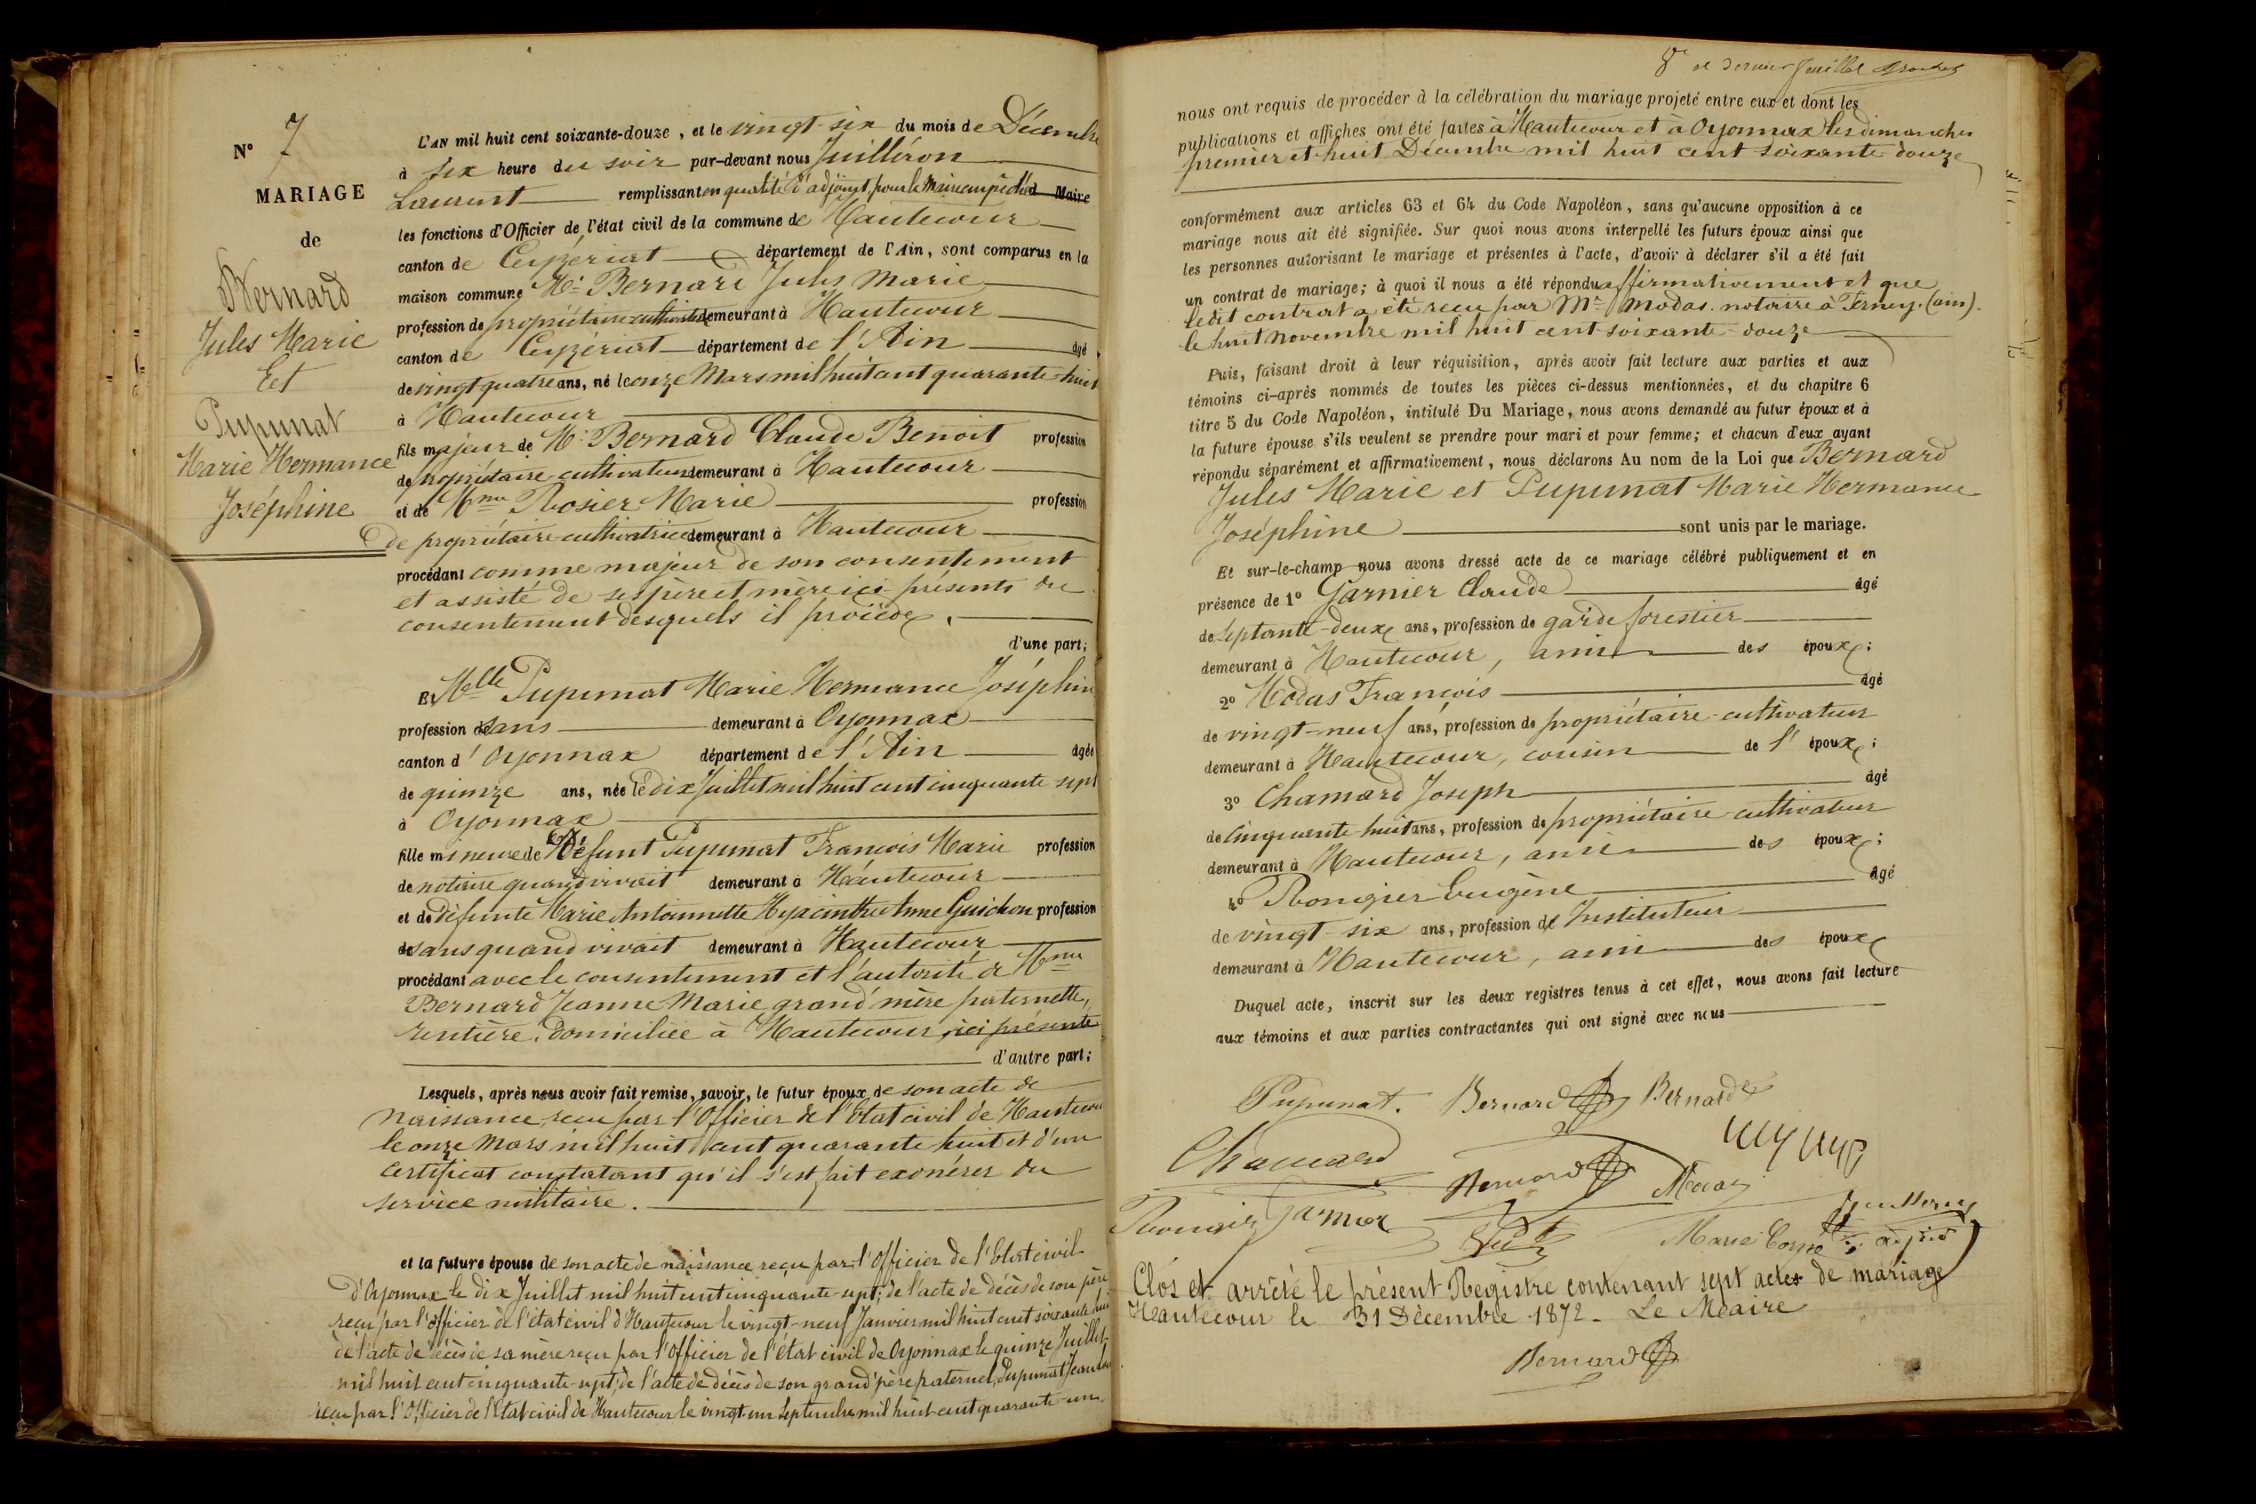 N° 7
MARIAGE
de
Bernard
Jules Marie
Et
Pupunat
Marie Hermance
Joséphine
L'AN mil huit cent soixante-douze, et le vingt-six du mois de Décembre
à six heure du soir par-devant nous Juilléron
Laurent remplissant en qualité d'adjoint, pour le Maire empêché Maire
les fonctions d'Officier de l'état civil de la commune de Hautecour
canton de Ceyzériat département de l'Ain, sont comparus en la
maison commune Mr Bernard Jules Marie
profession de propriétaire cultivateur demeurant à Hautecour
canton de Ceyzériat département de l'Ain âgé
de vingt quatre ans, né le onze Mars mil huit cent quarante-huit
à Hautecour
fils majeur de Mr Bernard Claude Benoit profession
de propriétaire-cultivateur demeurant à Hautecour
et de Mme Rosier Marie profession
de propriétaire-cultivatrice demeurant à Hautecour
procédant comme majeur de son consentement
et assisté de ses père et mère ici présents du
consentement desquels il procède.
d'une part;
Et Melle Pupunat Marie Hermance Joséphin
profession de sans demeurant à Oyonnax
canton d'Oyonnax département de l'Ain âgée
de quinze ans, née le dix Juillet mil huit cent cinquante-sept
à Oyonnax
fille mineure de Défunt Pupunat François Marie profession
de notaire quand vivait demeurant à Hautecour
et de défunte Marie Antoinnette Hyacinthe Anne Guichon profession
de sans quand vivait demeurant à Hautecour
procédant avec le consentement et l'autorité de Mme
Bernard Jeanne Marie grand'mère paternelle,
rentière, domiciliée à Hautecour, ici présente
d'autre part;
Lesquels, après nous avoir fait remise, savoir, le futur époux de son acte de
naissance reçu par l'Officier de l'Etat civil de Hautecour
le onze Mars mil huit cent quarante-huit et d'un
certificat constatant qu'il s'est fait exonérer du
service militaire.
et la future épouse de son acte de naissance reçu par l'Officier de l'Etat civil
d'Oyonnax le dix Juillet mil huit cent cinquante-sept; de l'acte de décès de son père
reçu par l'officier de l'état civil d'Hautecour le vingt-neuf Janvier mil huit cent soixante huit
de l'acte de décès de sa mère reçu par l'Officier de l'état civil de Oyonnax le quinze Juillet
mil huit cent cinquante-sept; de l'acte de décès de son grand'père paternel, Pupunat Jean
reçu par l'Officier de l'Etat civil de Hautecour le vingt-un Septembre mil huit cent quarante-un.
8e et dernier feuillet
nous ont requis de procéder à la célébration du mariage projeté entre eux et dont les
publications et affiches ont été faites à Hautecour et à Oyonnax les dimanches
premier et huit Décembre mil huit cent soixante-douze
conformément aux articles 63 et 64 du Code Napoléon, sans qu'aucune opposition à ce
mariage nous ait été signifiée. Sur quoi nous avons interpellé les futurs époux ainsi que
les personnes autorisant le mariage et présentes à l'acte, d'avoir à déclarer s'il a été fait
un contrat de mariage; à quoi il nous a été répondu affirmativement et que
ledit contrat a été reçu par Mr Modas notaire à Ferney (ain).
le huit novembre mil huit cent soixante-douze
Puis, faisant droit à leur réquisition, après avoir fait lecture aux parties et aux
témoins ci-après nommés de toutes les pièces ci-dessus mentionnées, et du chapitre 6
titre 5 du Code Napoléon, intitulé Du Mariage, nous avons demandé au futur époux et à
la future épouse s'ils veulent se prendre pour mari et pour femme; et chacun d'eux ayant
répondu séparément et affirmativement, nous déclarons Au nom de la Loi que Bernard
Jules Marie et Pupunat Marie Hermance
Joséphine sont unis par le mariage.
Et sur-le-champ nous avons dressé acte de ce mariage célébré publiquement et en
présence de 1° Garnier Claude âgé
de septante-deux ans, profession de garde forestier
demeurant à Hautecour, ami des époux;
2° Modas François âgé
de vingt-neuf ans, profession de propriétaire-cultivateur
demeurant à Hautecour, cousin de l'époux;
3° Chamard Joseph âgé
de cinquante-huit ans, profession de propriétaire-cultivateur
demeurant à Hautecour, ami des époux;
4° Rongier Eugène âgé
de vingt-six ans, profession de Instituteur
demeurant à Hautecour, ami des époux
Duquel acte, inscrit sur les deux registres tenus à cet effet, nous avons fait lecture
aux témoins et aux parties contractantes qui ont signé avec nous
Pupunat. Bernard Bernard
Chamard Bernard Modas
Rongier Garnier
Clos et arrêté le présent Registre contenant sept actes de mariage
Hautecour le 31 Décembre 1872. Le Maire
Bernard